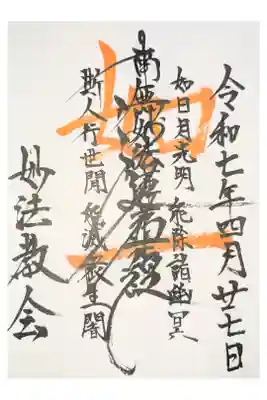 令和七年四月廿七日
如日月光明 能除諸幽冥
南無妙法蓮華經
斯人行世間 能滅衆生闇
妙法教会